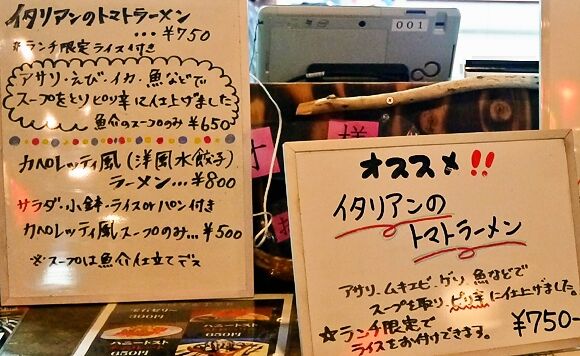 イタリアンのトマトラーメン
...¥750
*ランチ限定ライス付き
アサリ・えび・イカ・魚などで
スープをとりピリ辛に仕上げました
魚介のスープのみ ¥650
カペレッティ風(洋風水餃子)
ラーメン...¥800
サラダ・小鉢・ライスorパン付き
カペレッティ風スープのみ...¥500
※スープは魚介仕立てデス
001
オススメ!!
イタリアンの
トマトラーメン
アサリ、ムキエビ・ゲソ 魚などで
スープを取り、ピリ辛に仕上げました。
☆ランチ限定で
ライスをお付けできます。
¥750-
300円
ハニートースト
650円
ハニートースト
650円